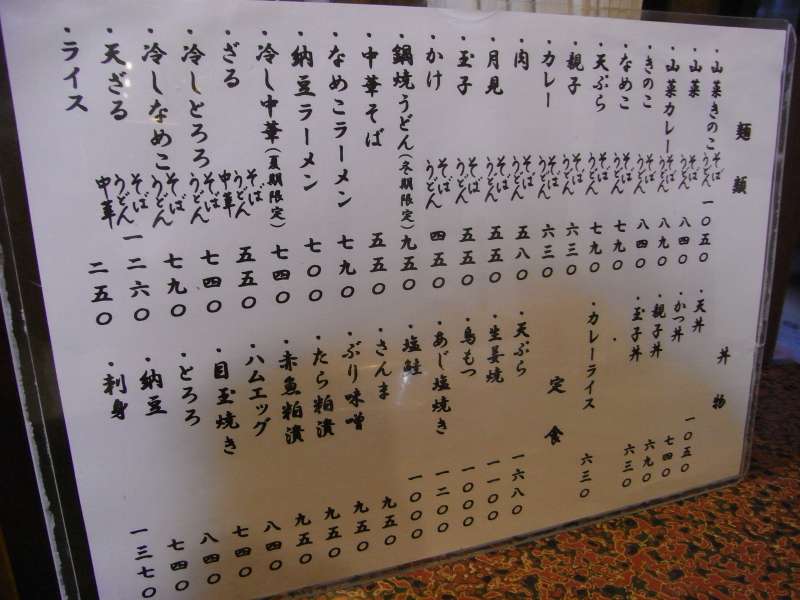 麺類
・山菜きのこ そば うどん 一〇五〇
・山菜 そば うどん 八四〇
・山菜カレー そば うどん 八四〇
・きのこ そば うどん 八四〇
・なめこ そば うどん 七九〇
・天ぷら そば うどん 七九〇
・親子 そば うどん 六三〇
・カレー そば うどん 六三〇
・肉 そば うどん 五八〇
・月見 そば うどん 五五〇
・玉子 そば うどん 五五〇
・かけ そば うどん 四五〇
・鍋焼うどん(冬期限定) 九五〇
・中華そば 五五〇
・なめこラーメン 七九〇
・納豆ラーメン 七〇〇
・冷し中華(夏期限定) 七四〇
・ざる そば うどん 中華 五五〇
・冷しとろろ そば うどん 七四〇
・冷しなめこ そば うどん 七九〇
・天ざる そば うどん 中華 一二六〇
・ライス 二五〇
丼物
・天丼 一〇五〇
・かつ丼 七四〇
・親子丼 六九〇
・玉子丼 六三〇
・カレーライス 六三〇
定食
・天ぷら 一六八〇
・生姜焼 一一〇〇
・鳥もつ 一〇〇〇
・あじ塩焼き 一二〇〇
・塩鮭 一〇〇〇
・さんま 九五〇
・ぶり味噌 九五〇
・たら粕漬 九五〇
・赤魚粕漬 九五〇
・ハムエッグ 八四〇
・目玉焼き 七四〇
・とろろ 八四〇
・納豆 七四〇
・刺身 一三七〇